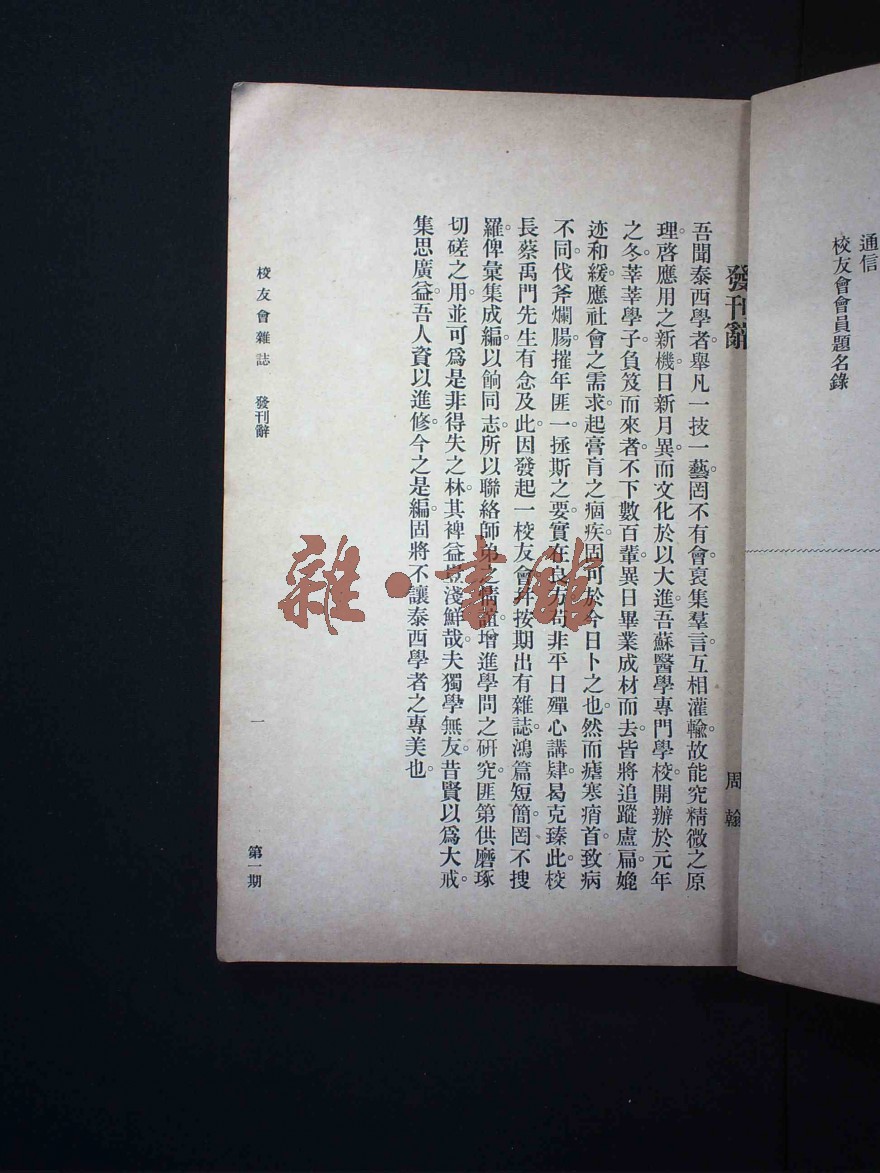 通信
校友會會員題名錄
發刊辭
周翰
吾聞泰西學者舉凡一技一藝。罔不有會裒集羣言。互相灌輸。故能究精微之原
理。啓應用之新機。日新月異。而文化於以大進。吾蘇醫學專門學校。開辦於元年
之冬。莘莘學子。負笈而來者。不下數百輩。異日畢業成材而去。皆將追蹤盧扁。媲
迹和緩。應社會之需求。起膏肓之痼疾。固可於今日卜之也。然而瘧寒痟首。致病
不同。伐斧爛腸。摧年匪一。拯斯之要。實在良方。苟非平日殫心講肄。曷克臻此。校
長蔡禹門先生有念及此。因發起一校友會。幷按期出有雜誌。鴻篇短簡。罔不搜
羅。俾彙集成編。以餉同志。所以聯絡師弟之情誼。增進學問之研究。匪第供磨琢
切磋之用。並可爲是非得失之林。其裨益豈淺鮮哉。夫獨學無友。昔賢以爲大戒。
集思廣益。吾人資以進修。今之是編。固將不讓泰西學者之專美也。
校友會雜誌 發刊辭 一 第一期
雜·書館